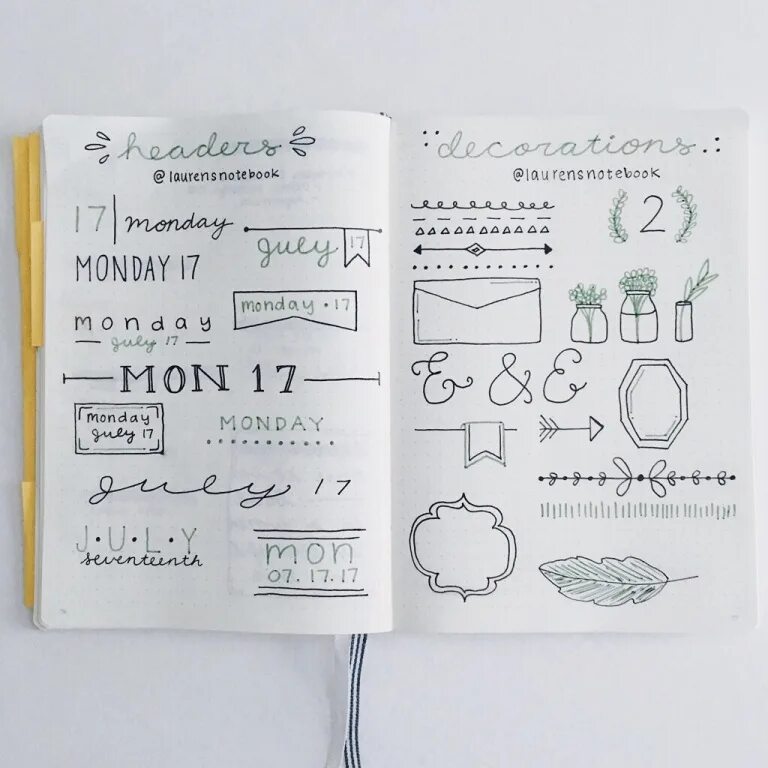 headers
@laurensnotebook
17 | monday
july 17
MONDAY 17
monday • 17
monday
july 17
MON 17
monday
july 17
MONDAY
july 17
J•U•L•Y
seventeenth
mon
07.17.17
decorations
@laurensnotebook
2
& & &